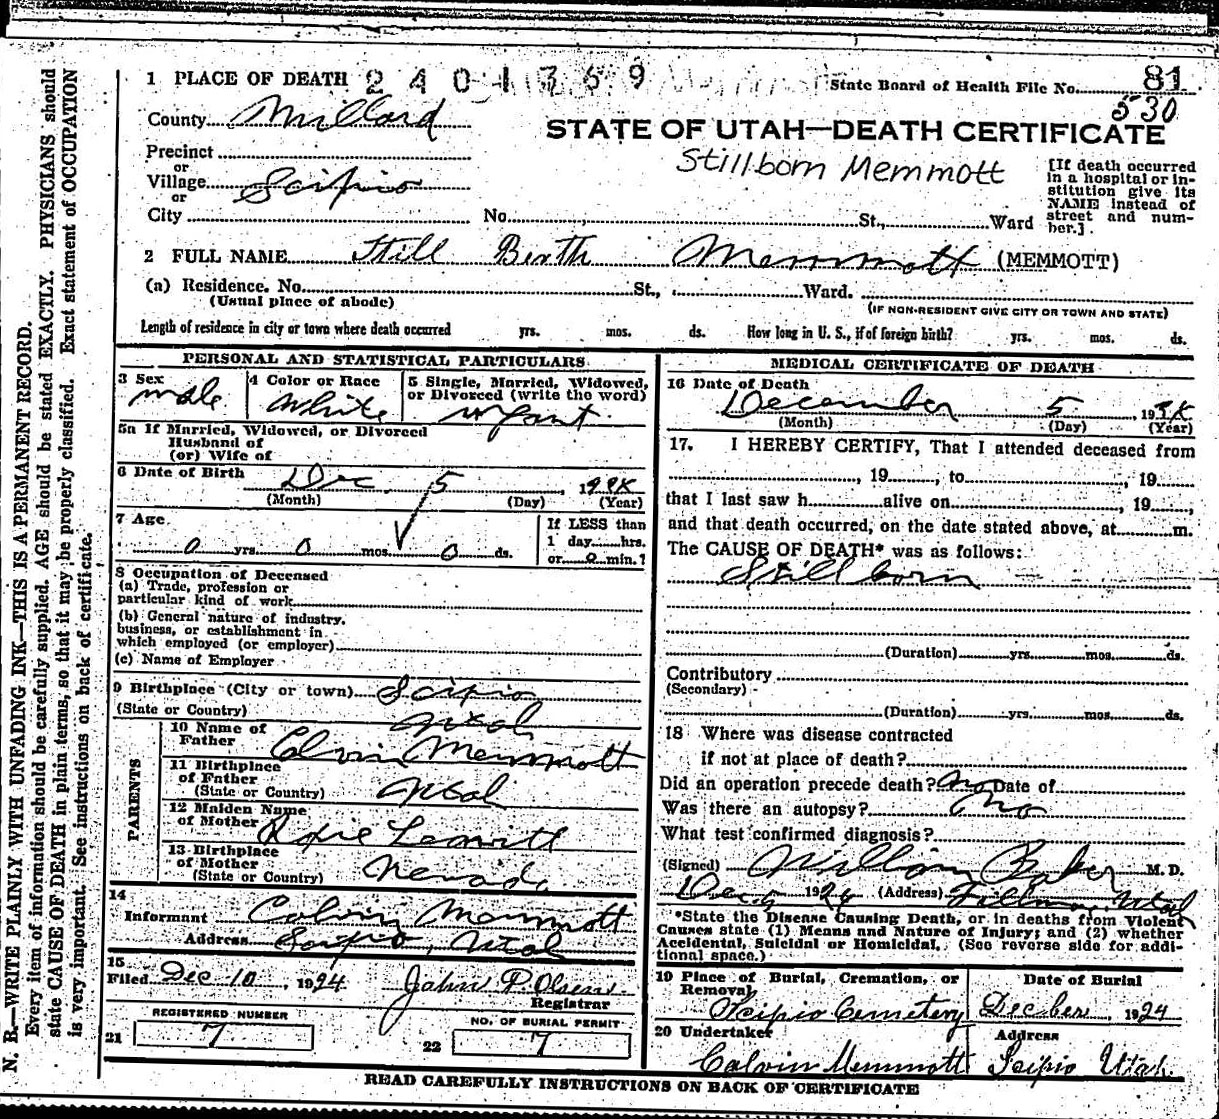 N. B.—WRITE PLAINLY WITH UNFADING INK—THIS IS A PERMANENT RECORD.
Every item of information should be carefully supplied. AGE should be stated EXACTLY. PHYSICIANS should
state CAUSE OF DEATH in plain terms, so that it may be properly classified. Exact statement of OCCUPATION
is very important. See instructions on back of certificate.
1 PLACE OF DEATH 2401369 State Board of Health File No. 81
530
County Millard
STATE OF UTAH—DEATH CERTIFICATE
Stillborn Memmott
Precinct
or
Village Scipio
or
City No. St., Ward
[If death occurred
in a hospital or in-
stitution give its
NAME instead of
street and num-
ber.]
2 FULL NAME Still Birth Memmott (MEMMOTT)
(a) Residence. No. St., Ward.
(Usual place of abode) (IF NON-RESIDENT GIVE CITY OR TOWN AND STATE)
Length of residence in city or town where death occurred yrs. mos. ds. How long in U. S., if of foreign birth? yrs. mos. ds.
PERSONAL AND STATISTICAL PARTICULARS
3 Sex male
4 Color or Race White
5 Single, Married, Widowed,
or Divorced (write the word)
infant
5a If Married, Widowed, or Divorced
Husband of
(or) Wife of
6 Date of Birth Dec. 5, 1924
(Month) (Day) (Year)
7 Age
0 yrs. 0 mos. 0 ds.
If LESS than
1 day hrs.
or 0 min.?
8 Occupation of Deceased
(a) Trade, profession or
particular kind of work
(b) General nature of industry,
business, or establishment in
which employed (or employer)
(c) Name of Employer
9 Birthplace (City or town) Scipio
(State or Country) Utah
PARENTS
10 Name of
Father Calvin Memmott
11 Birthplace
of Father
(State or Country) Utah
12 Maiden Name
of Mother
13 Birthplace
of Mother
(State or Country) Nevada
14
Informant Calvin Memmott
Address Scipio, Utah
15
Filed Dec 10, 1924 John P. Olsen
Registrar
REGISTERED NUMBER
21 7
NO. OF BURIAL PERMIT
22 7
MEDICAL CERTIFICATE OF DEATH
16 Date of Death
December 5, 1924
(Month) (Day) (Year)
17. I HEREBY CERTIFY, That I attended deceased from
, 19, to, 19
that I last saw h alive on, 19,
and that death occurred, on the date stated above, at m.
The CAUSE OF DEATH* was as follows:
Stillborn
(Duration) yrs. mos. ds.
Contributory
(Secondary)
(Duration) yrs. mos. ds.
18 Where was disease contracted
if not at place of death?
Did an operation precede death? no Date of
Was there an autopsy? No
What test confirmed diagnosis?
(Signed) William Baker M. D.
Dec 5 1924 (Address) Fillmore, Utah
*State the Disease Causing Death, or in deaths from Violent
Causes state (1) Means and Nature of Injury; and (2) whether
Accidental, Suicidal or Homicidal. (See reverse side for addi-
tional space.)
19 Place of Burial, Cremation, or
Removal
Scipio Cemetery
Date of Burial
December, 1924
20 Undertaker
Calvin Memmott
Address
Scipio Utah
READ CAREFULLY INSTRUCTIONS ON BACK OF CERTIFICATE